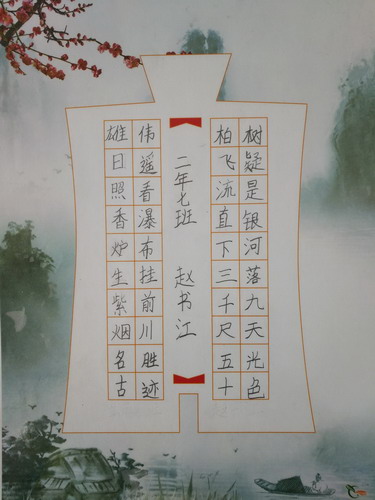 雄日照香炉生紫烟名古
伟遥看瀑布挂前川胜迹
二年七班 赵书江
柏飞流直下三千尺五十
树疑是银河落九天光色